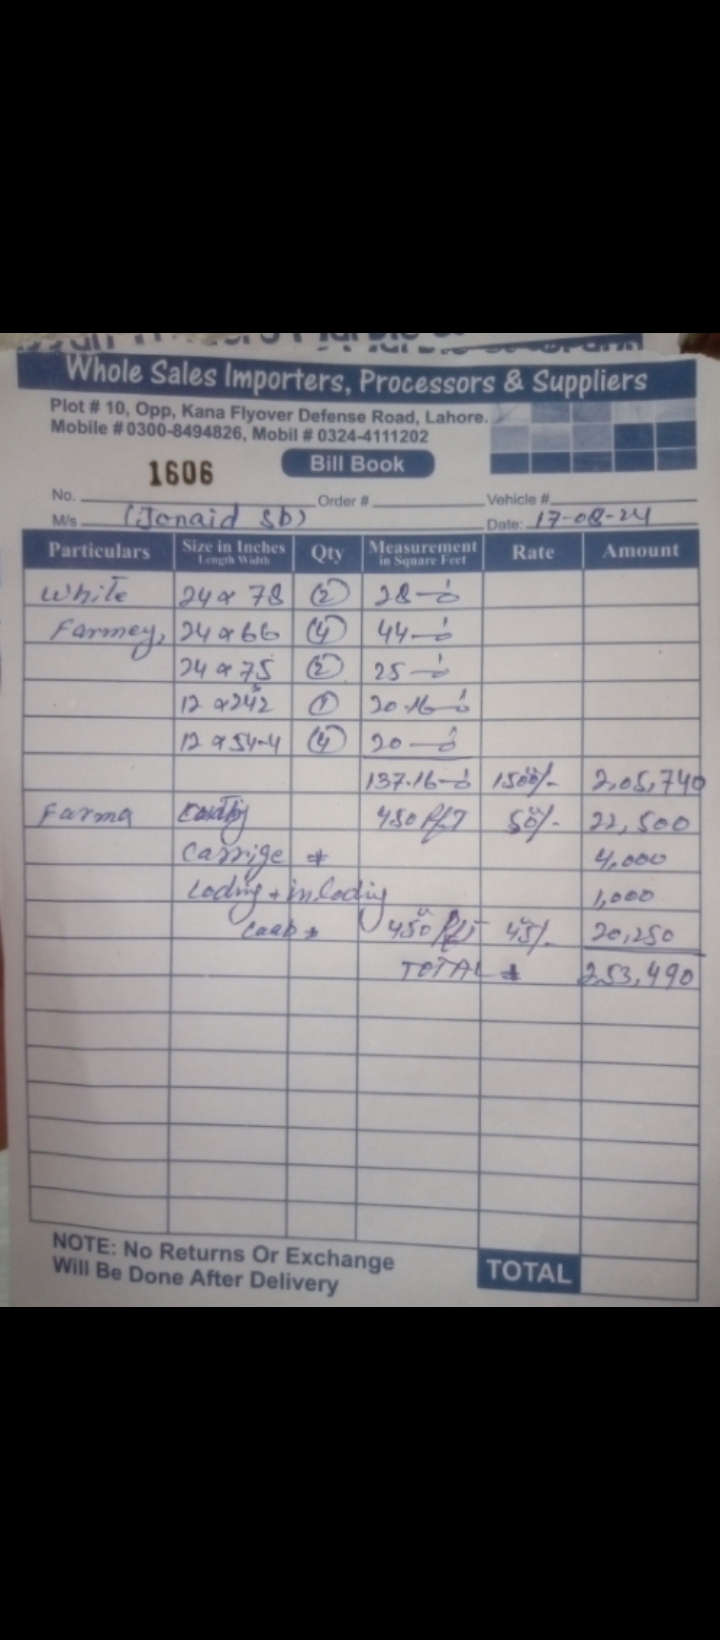 Whole Sales Importers, Processors & Suppliers
Plot # 10, Opp, Kana Flyover Defense Road, Lahore.
Mobile # 0300-8494826, Mobil # 0324-4111202
1606
Bill Book
No. Order # Vehicle #
M/s (Jonaid Sb) Date: 17-08-24
Particulars Size in Inches Length Width Qty Measurement in Square Feet Rate Amount
White 24 x 78 (2) 28
Farmey, 24 x 66 (4) 44
24 x 75 (2) 25
12 x 242 (1) 20.16
12 x 54-4 (4) 20
137.16 1500/- 2,05,740
Farma 450 Rft 50/- 22,500
Carrige 4,000
Loding + inloding 1,000
450 Rft 45/- 20,250
TOTAL 253,490
NOTE: No Returns Or Exchange
Will Be Done After Delivery
TOTAL